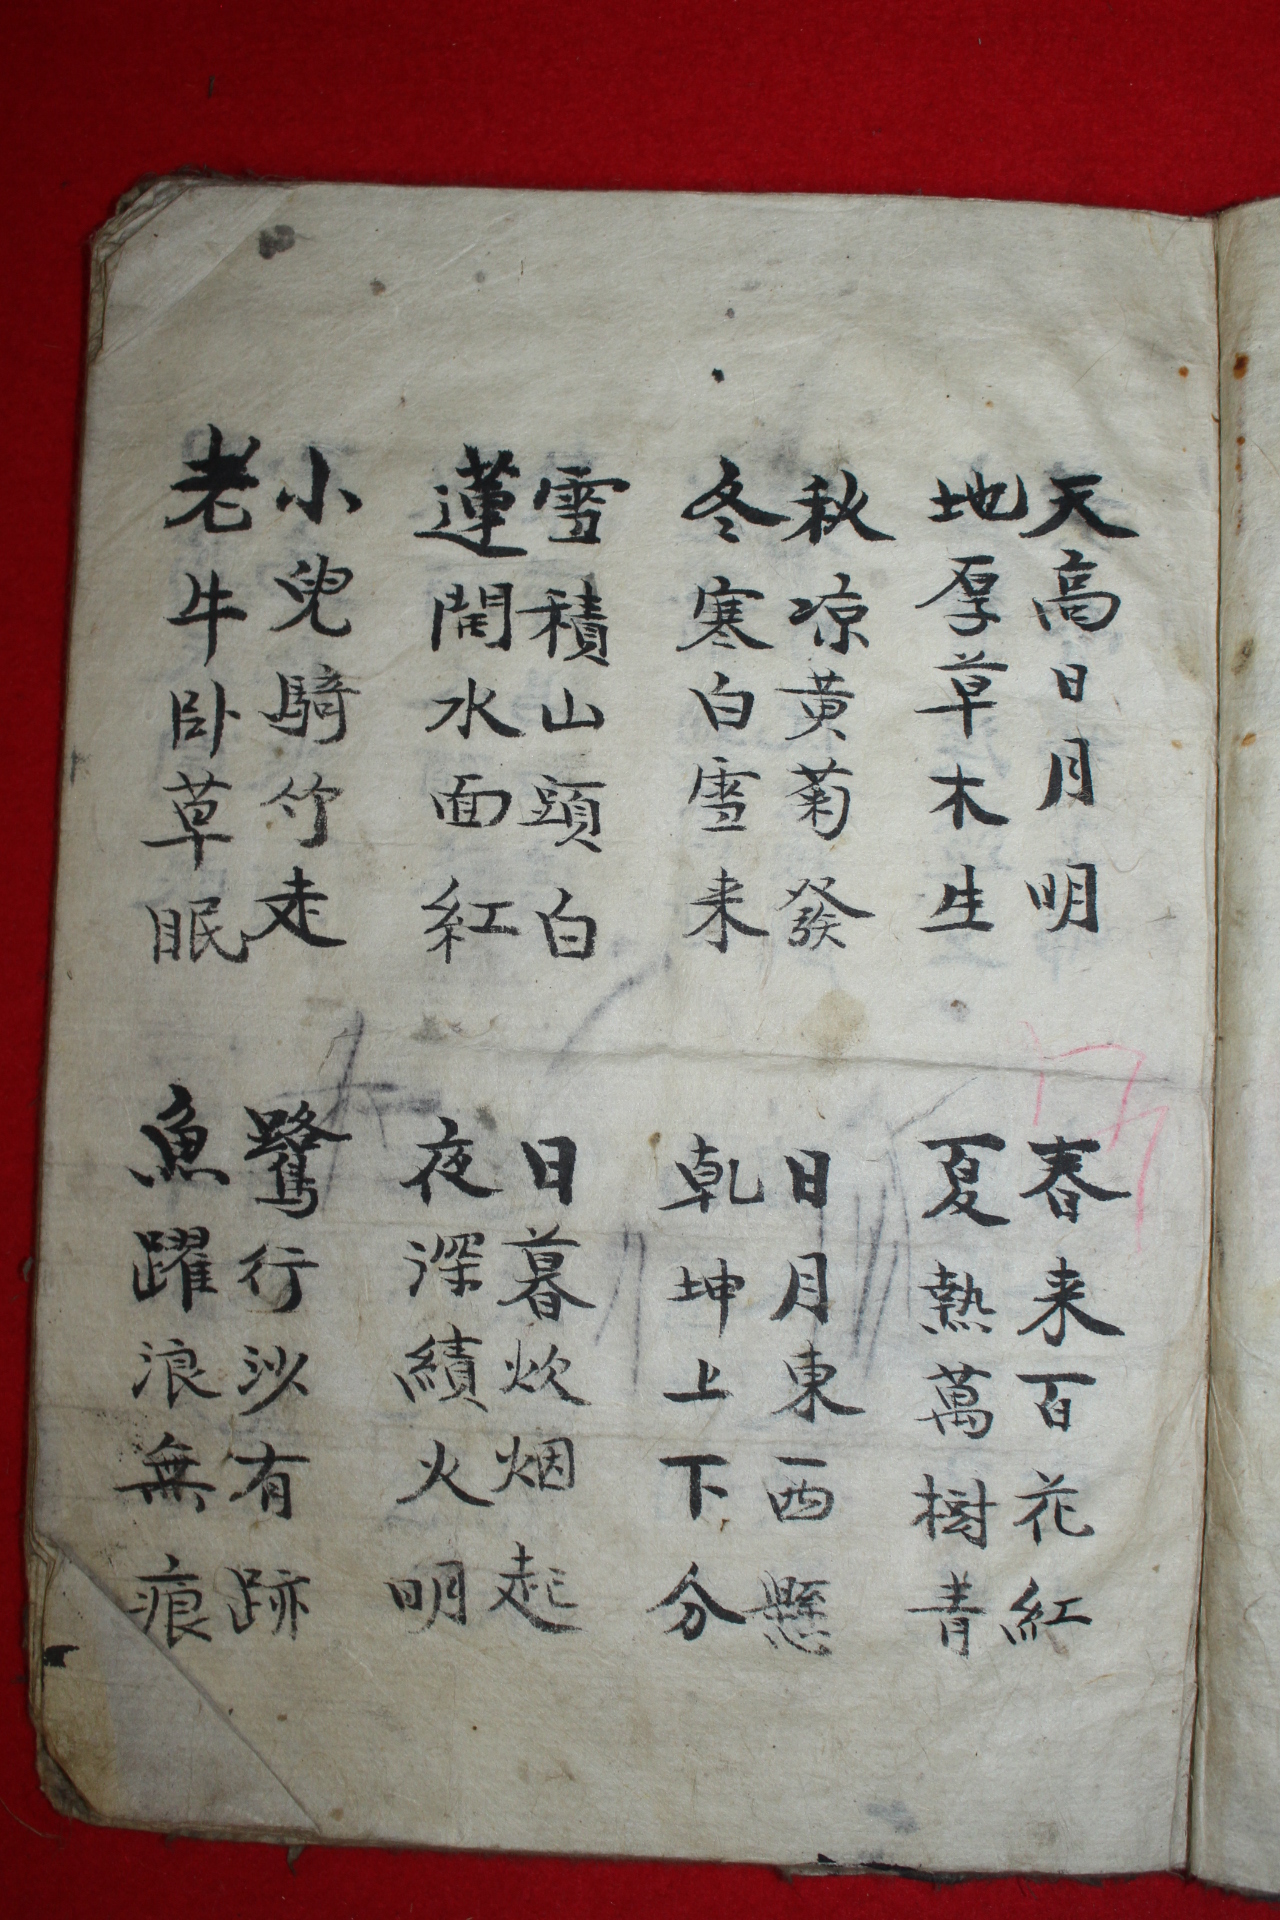 天高日月明
地厚草木生
春来百花紅
夏熱萬樹青
秋凉黄菊發
冬寒白雪来
日月東西懸
乾坤上下分
雪積山頭白
蓮開水面紅
日暮炊烟起
夜深績火明
小兒騎竹走
老牛卧草眠
鷺行沙有跡
魚躍浪無痕